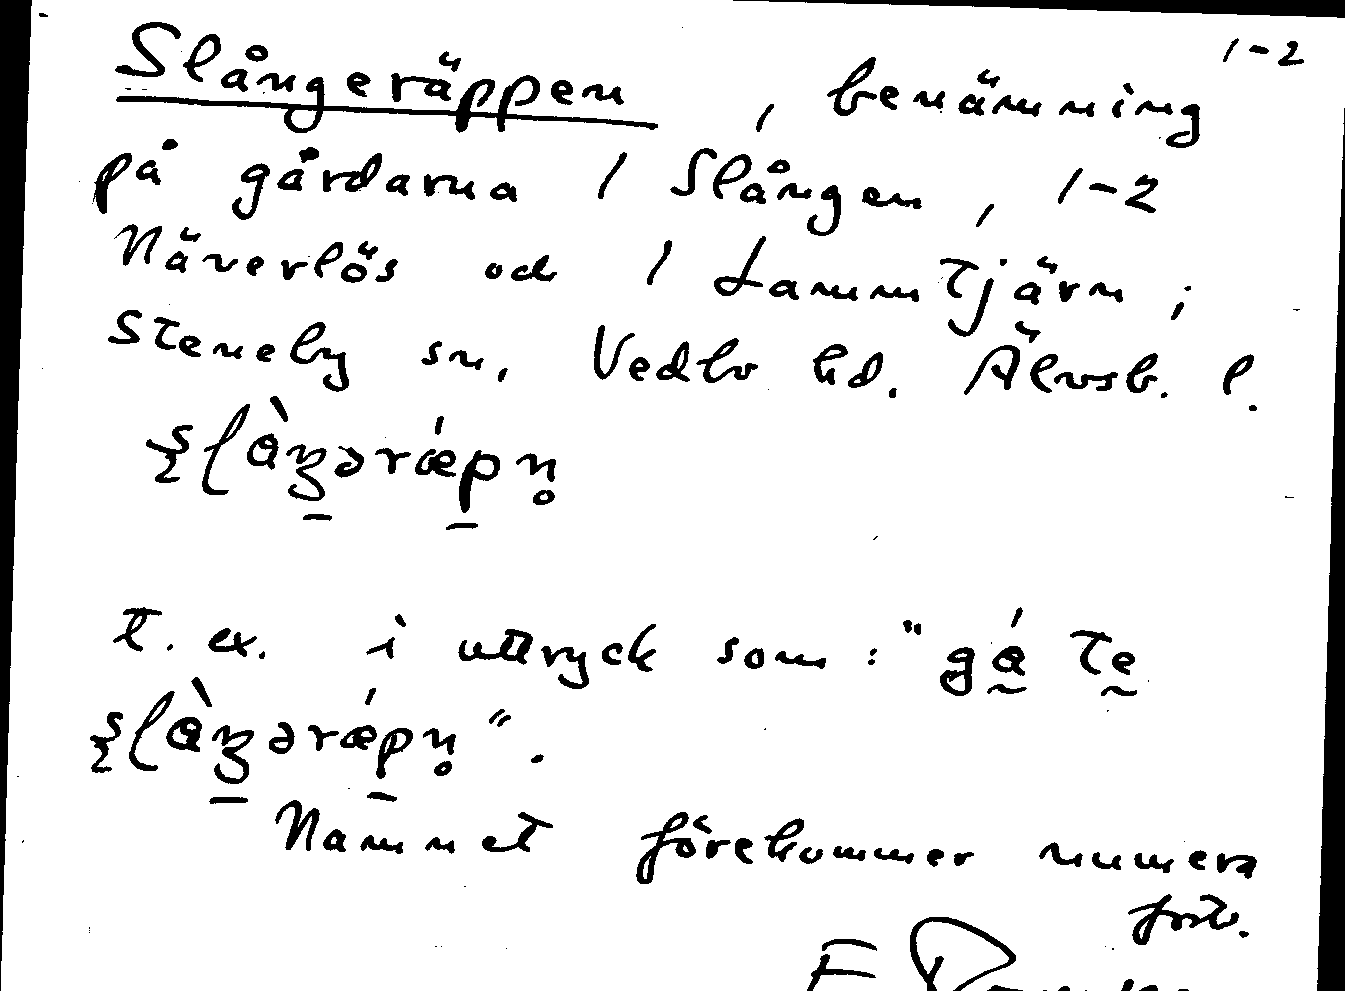 1-2
Slångeräppen, benämning
på gårdarna 1 Slången, 1-2
Näverlös och 1 Lammtjärn;
Steneby sn, Vedbo hd. Älvsb. l.
t. ex. i uttryck som: "gá te
Namnet förekommer numera